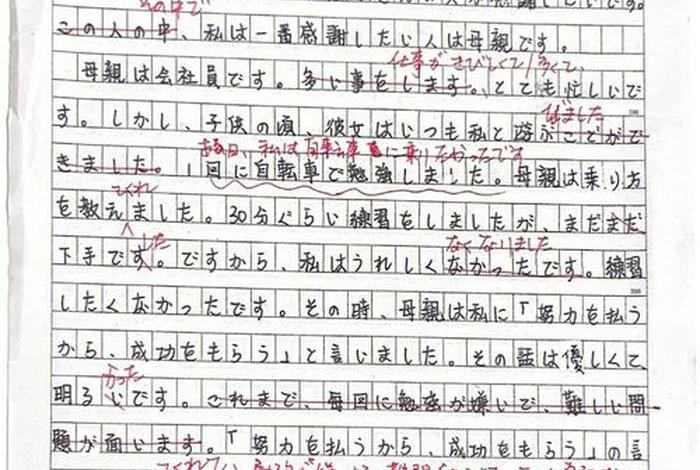 その中で
この人の中、私は一番感謝したい人は母親です。
仕事がきびしくて/多くて、
母親は会社員です。多い事をします。とても忙しいで
遊びました
す。しかし、子供の頃、彼女はいつも私と遊ぶことがで
ある日、私は自転車に乗りたかったです
きました。1回に自転車で勉強しました。母親は乗り方
てくれ
を教えました。30分ぐらい練習をしましたが、まだまだ
した なくなりました
下手です。ですから、私はうれしくなかったです。練習
したくなかったです。その時、母親は私に「努力を払う
から、成功をもらう」と言いました。その話は優しくて、
かった
明るいです。これまで、毎回に勉強が嫌いで、難しい問
題が面います。「努力を払うから、成功をもらう」の言